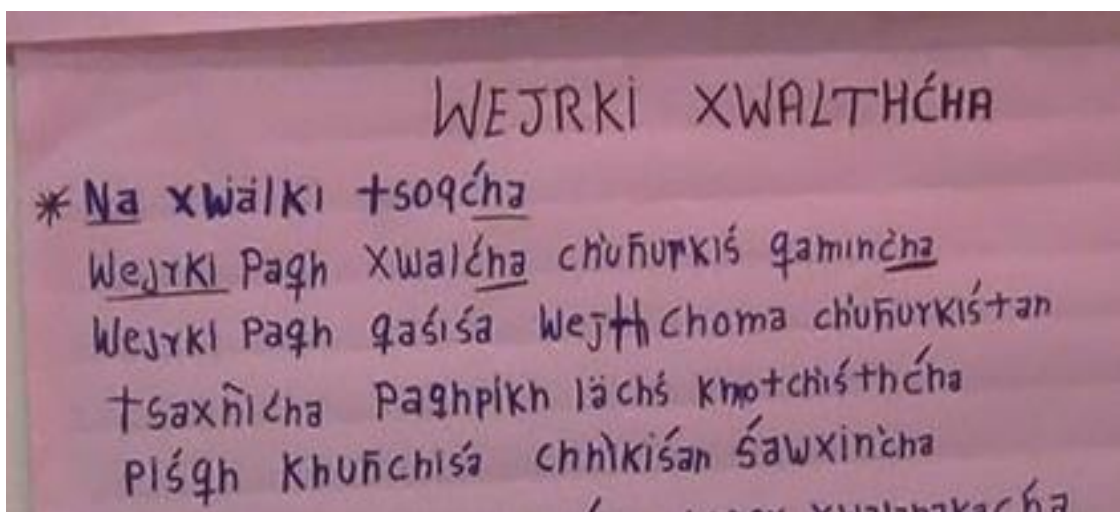 WEJRKI XWALTHĆHA
* Na xwälki tsoqćha
Wejrki Paqh Xwalćha chuñurkiś qaminćha
Wejrki Paqh qaśiśa Wejth choma chuñurkiśtan
tsaxñićha Paqhpikh lächś khotchiśthćha
Piśqh Khuñchiśa chhikiśan śawxinćha